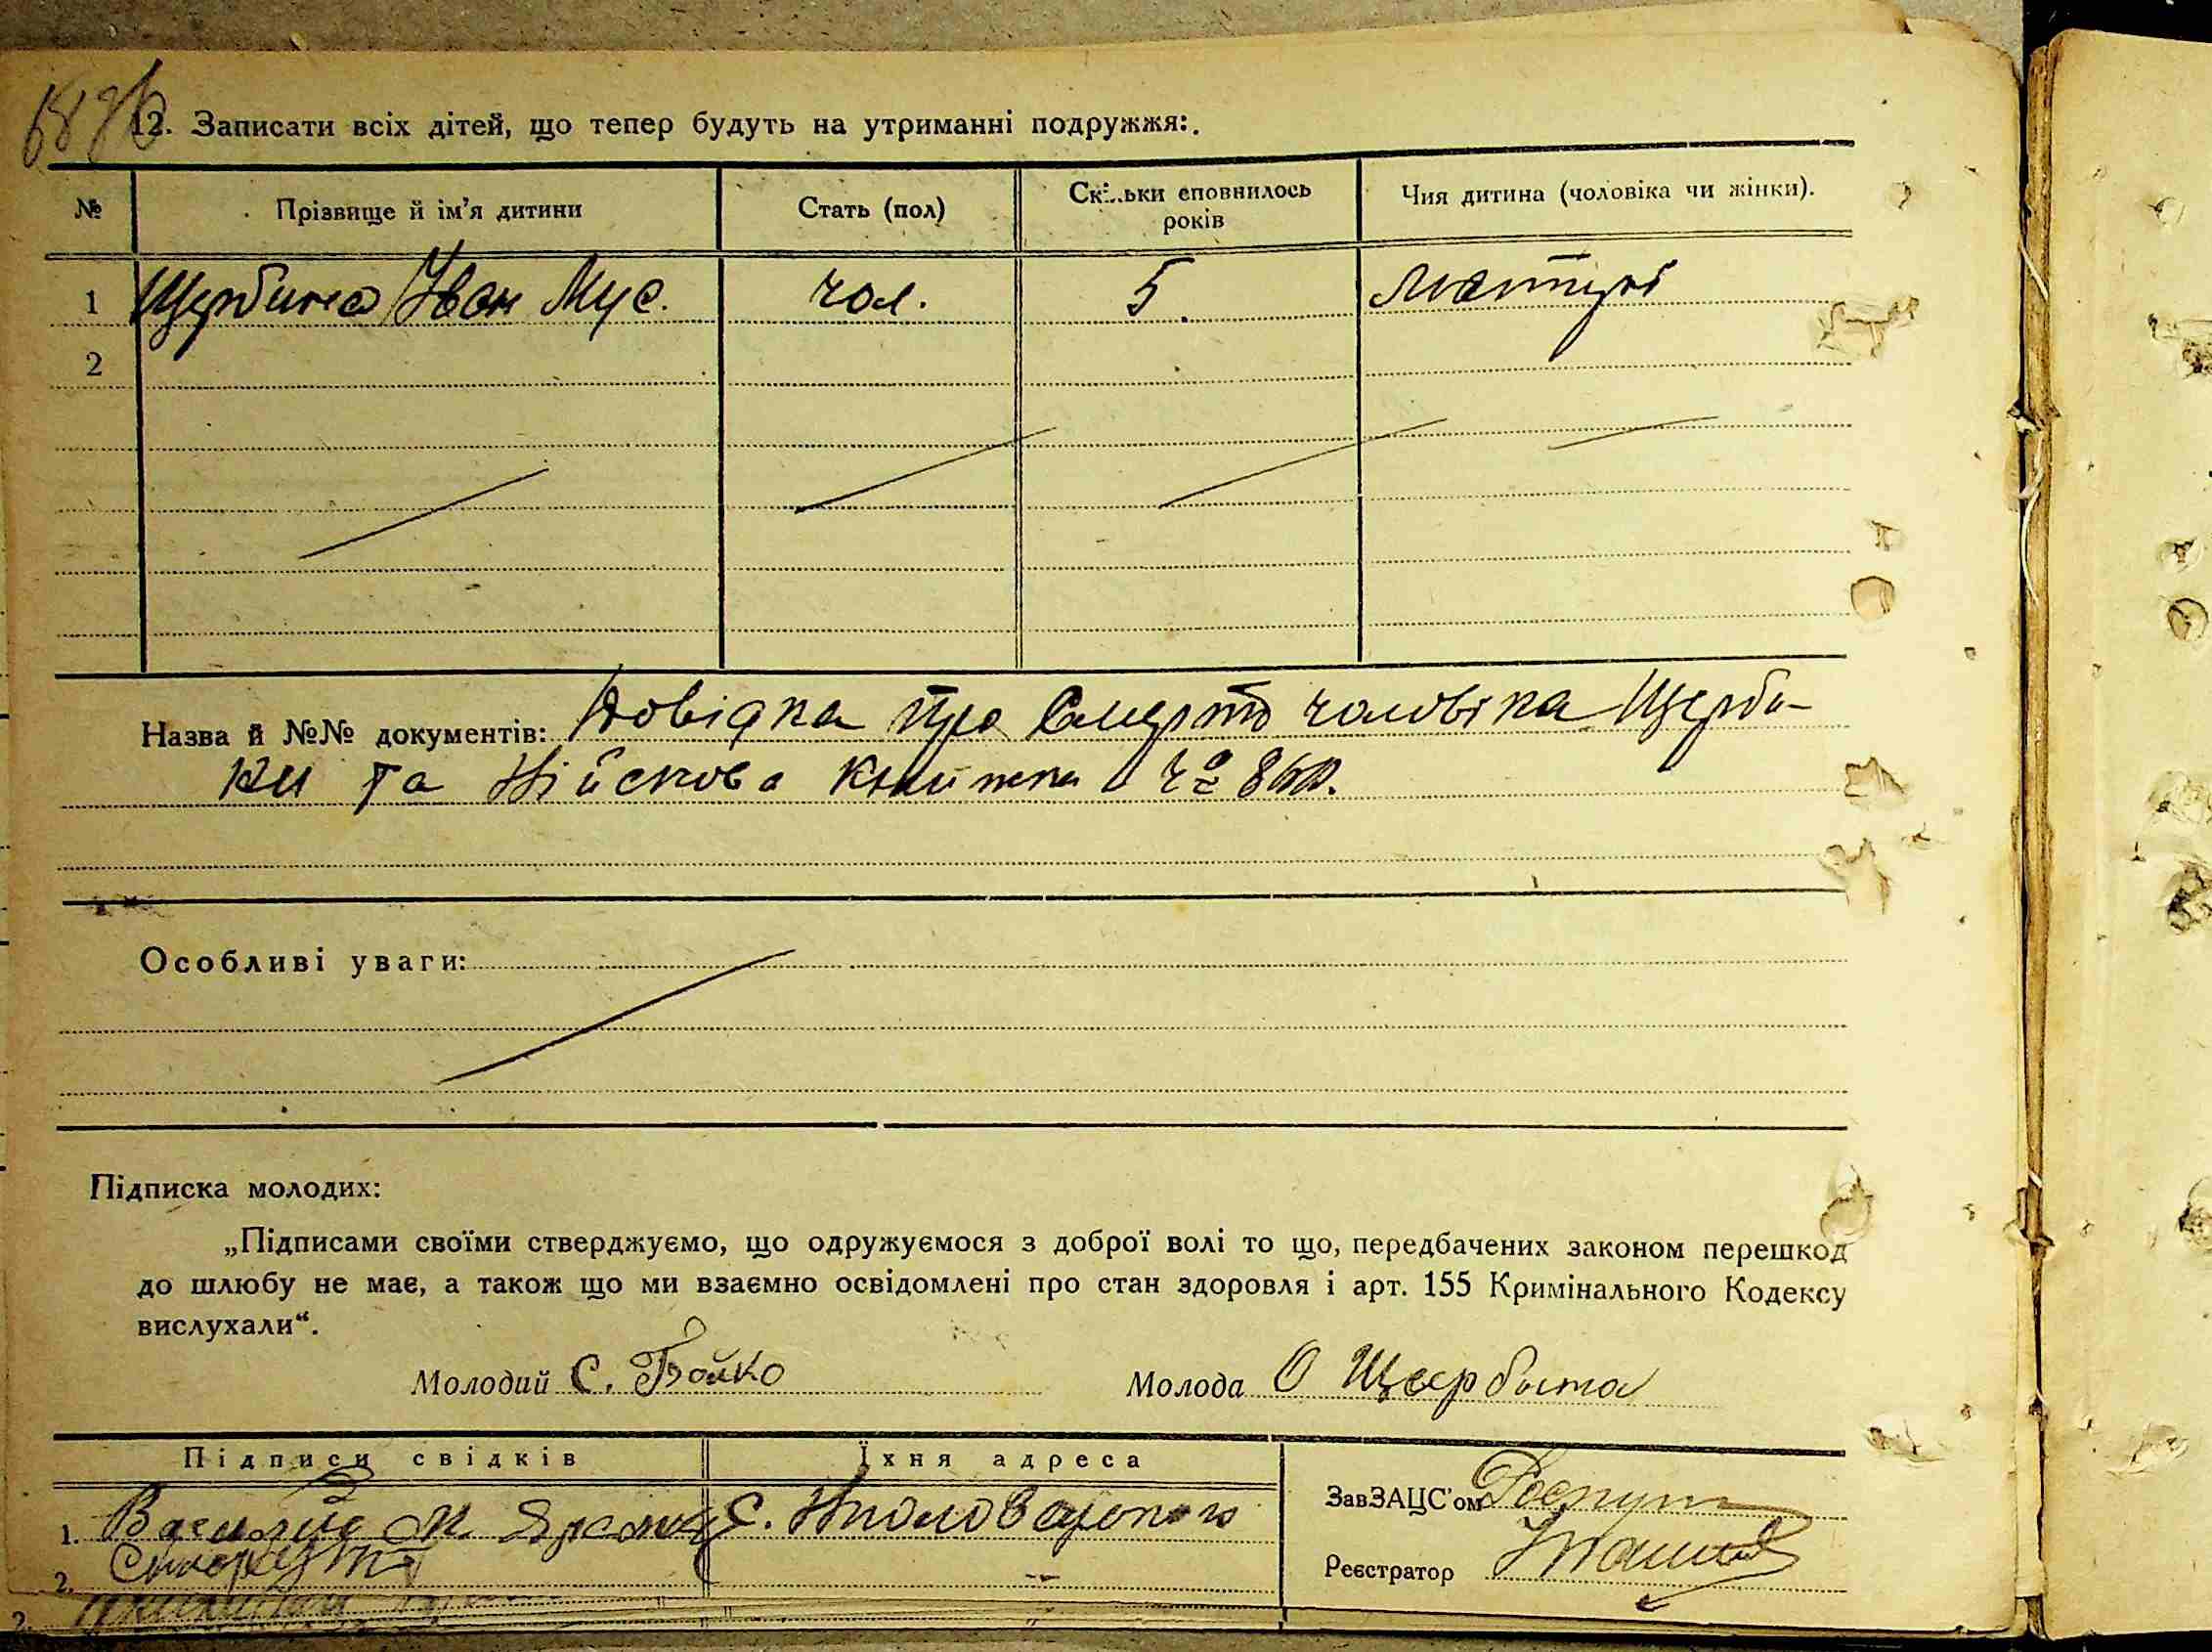 12. Записати всіх дітей, що тепер будуть на утриманні подружжя:.
№ Прізвище й ім’я дитини Стать (пол) Скільки сповнилось років Чия дитина (чоловіка чи жінки).
1 Щербина Іван Мус. чол. 5.
2
Назва й №№ документів: Довідка про смерть чоловіка Щерби-
ни та Війскова книжка
Особливі уваги:
Підписка молодих:
„Підписами своїми стверджуємо, що одружуємося з доброї волі то що, передбачених законом перешкод
до шлюбу не має, а також що ми взаємно освідомлені про стан здоровля і арт. 155 Кримінального Кодексу
вислухали“.
Молодий С. Бойко Молода О Щербина
Підписи свідків Їхня адреса
ЗавЗАЦС’ом
1. с.
2.
Реєстратор
2.